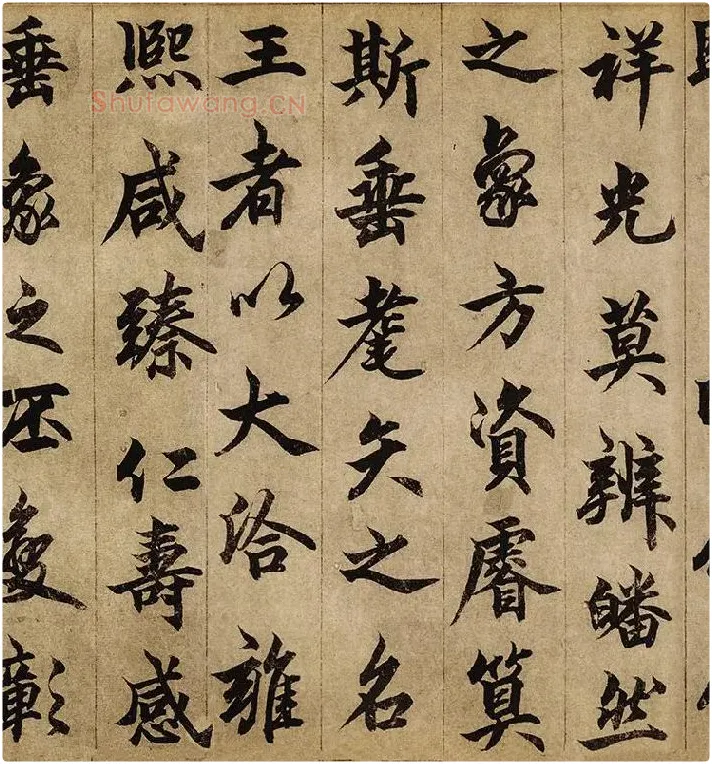 祥光莫辨皤然
之象方資睿算
斯垂耄矣之名
王者以大洽雍
熙咸臻仁壽感
垂象之丕變彰
Shufawang.CN